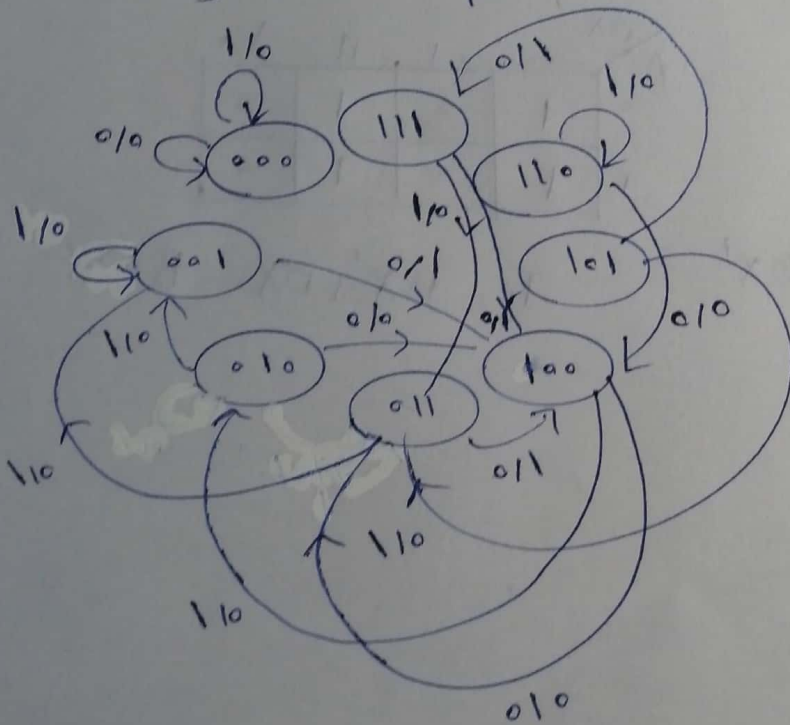 1/0
0/1
1/0
111
0/0
000
110
1/0
001
1/0
101
0/1
0/0
1/0
0/0
010
100
011
0/1
1/0
1/0
1/0
0/0